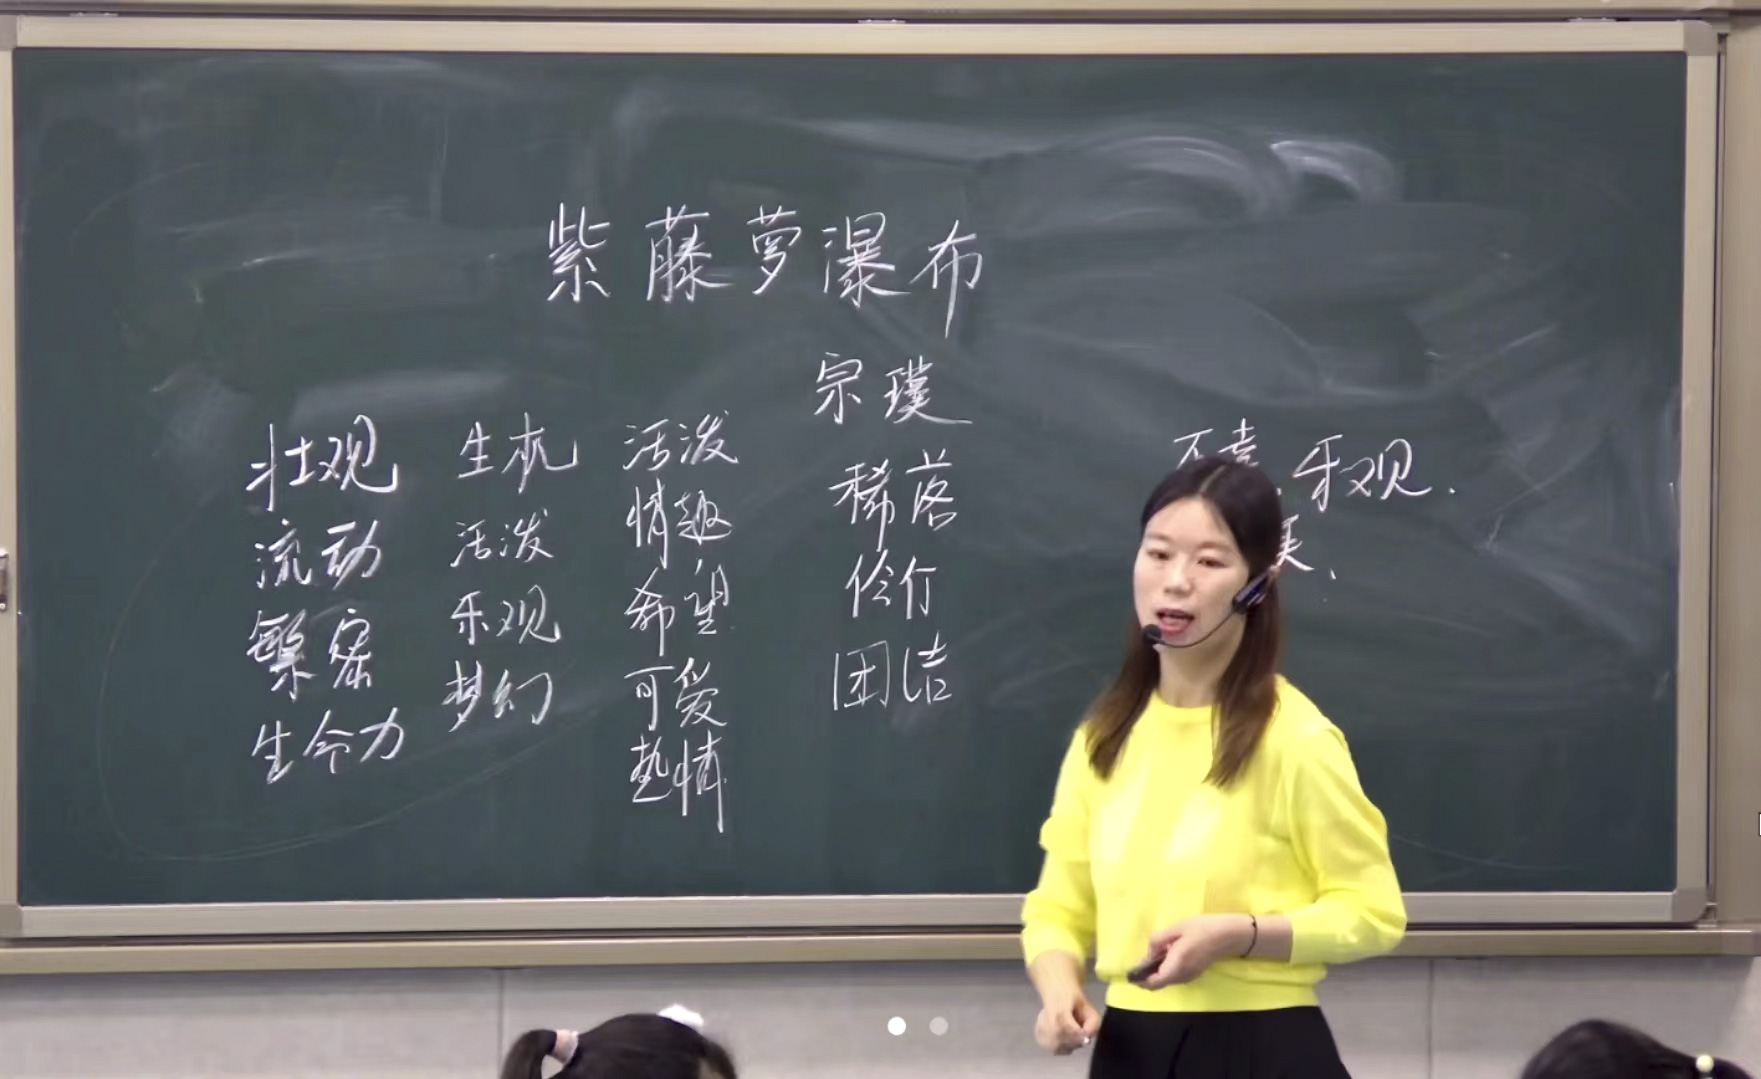 紫藤萝瀑布
宗璞
壮观
流动
繁密
生命力
生机
活泼
乐观
梦幻
活泼
情趣
希望
可爱
热情
稀落
伶仃
团洁
不幸 乐观.
美、